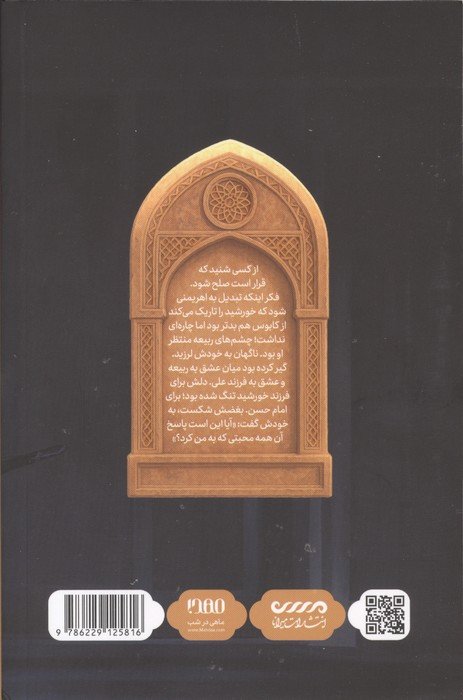 از کسی شنید که
قرار است صلح شود.
فکر اینکه تبدیل به اهریمنی
شود که خورشید را تاریک می‌کند
از کابوس هم بدتر بود اما چاره‌ای
نداشت؛ چشم‌های ربیعه منتظر
او بود. ناگهان به خودش لرزید.
گیر کرده بود میان عشق به ربیعه
و عشق به فرزند علی. دلش برای
فرزند خورشید تنگ شده بود؛ برای
امام حسن. بغضش شکست، به
خودش گفت: «آیا این است پاسخ
آن همه محبتی که به من کرد؟»
ماهی در شب
9 786229 125816